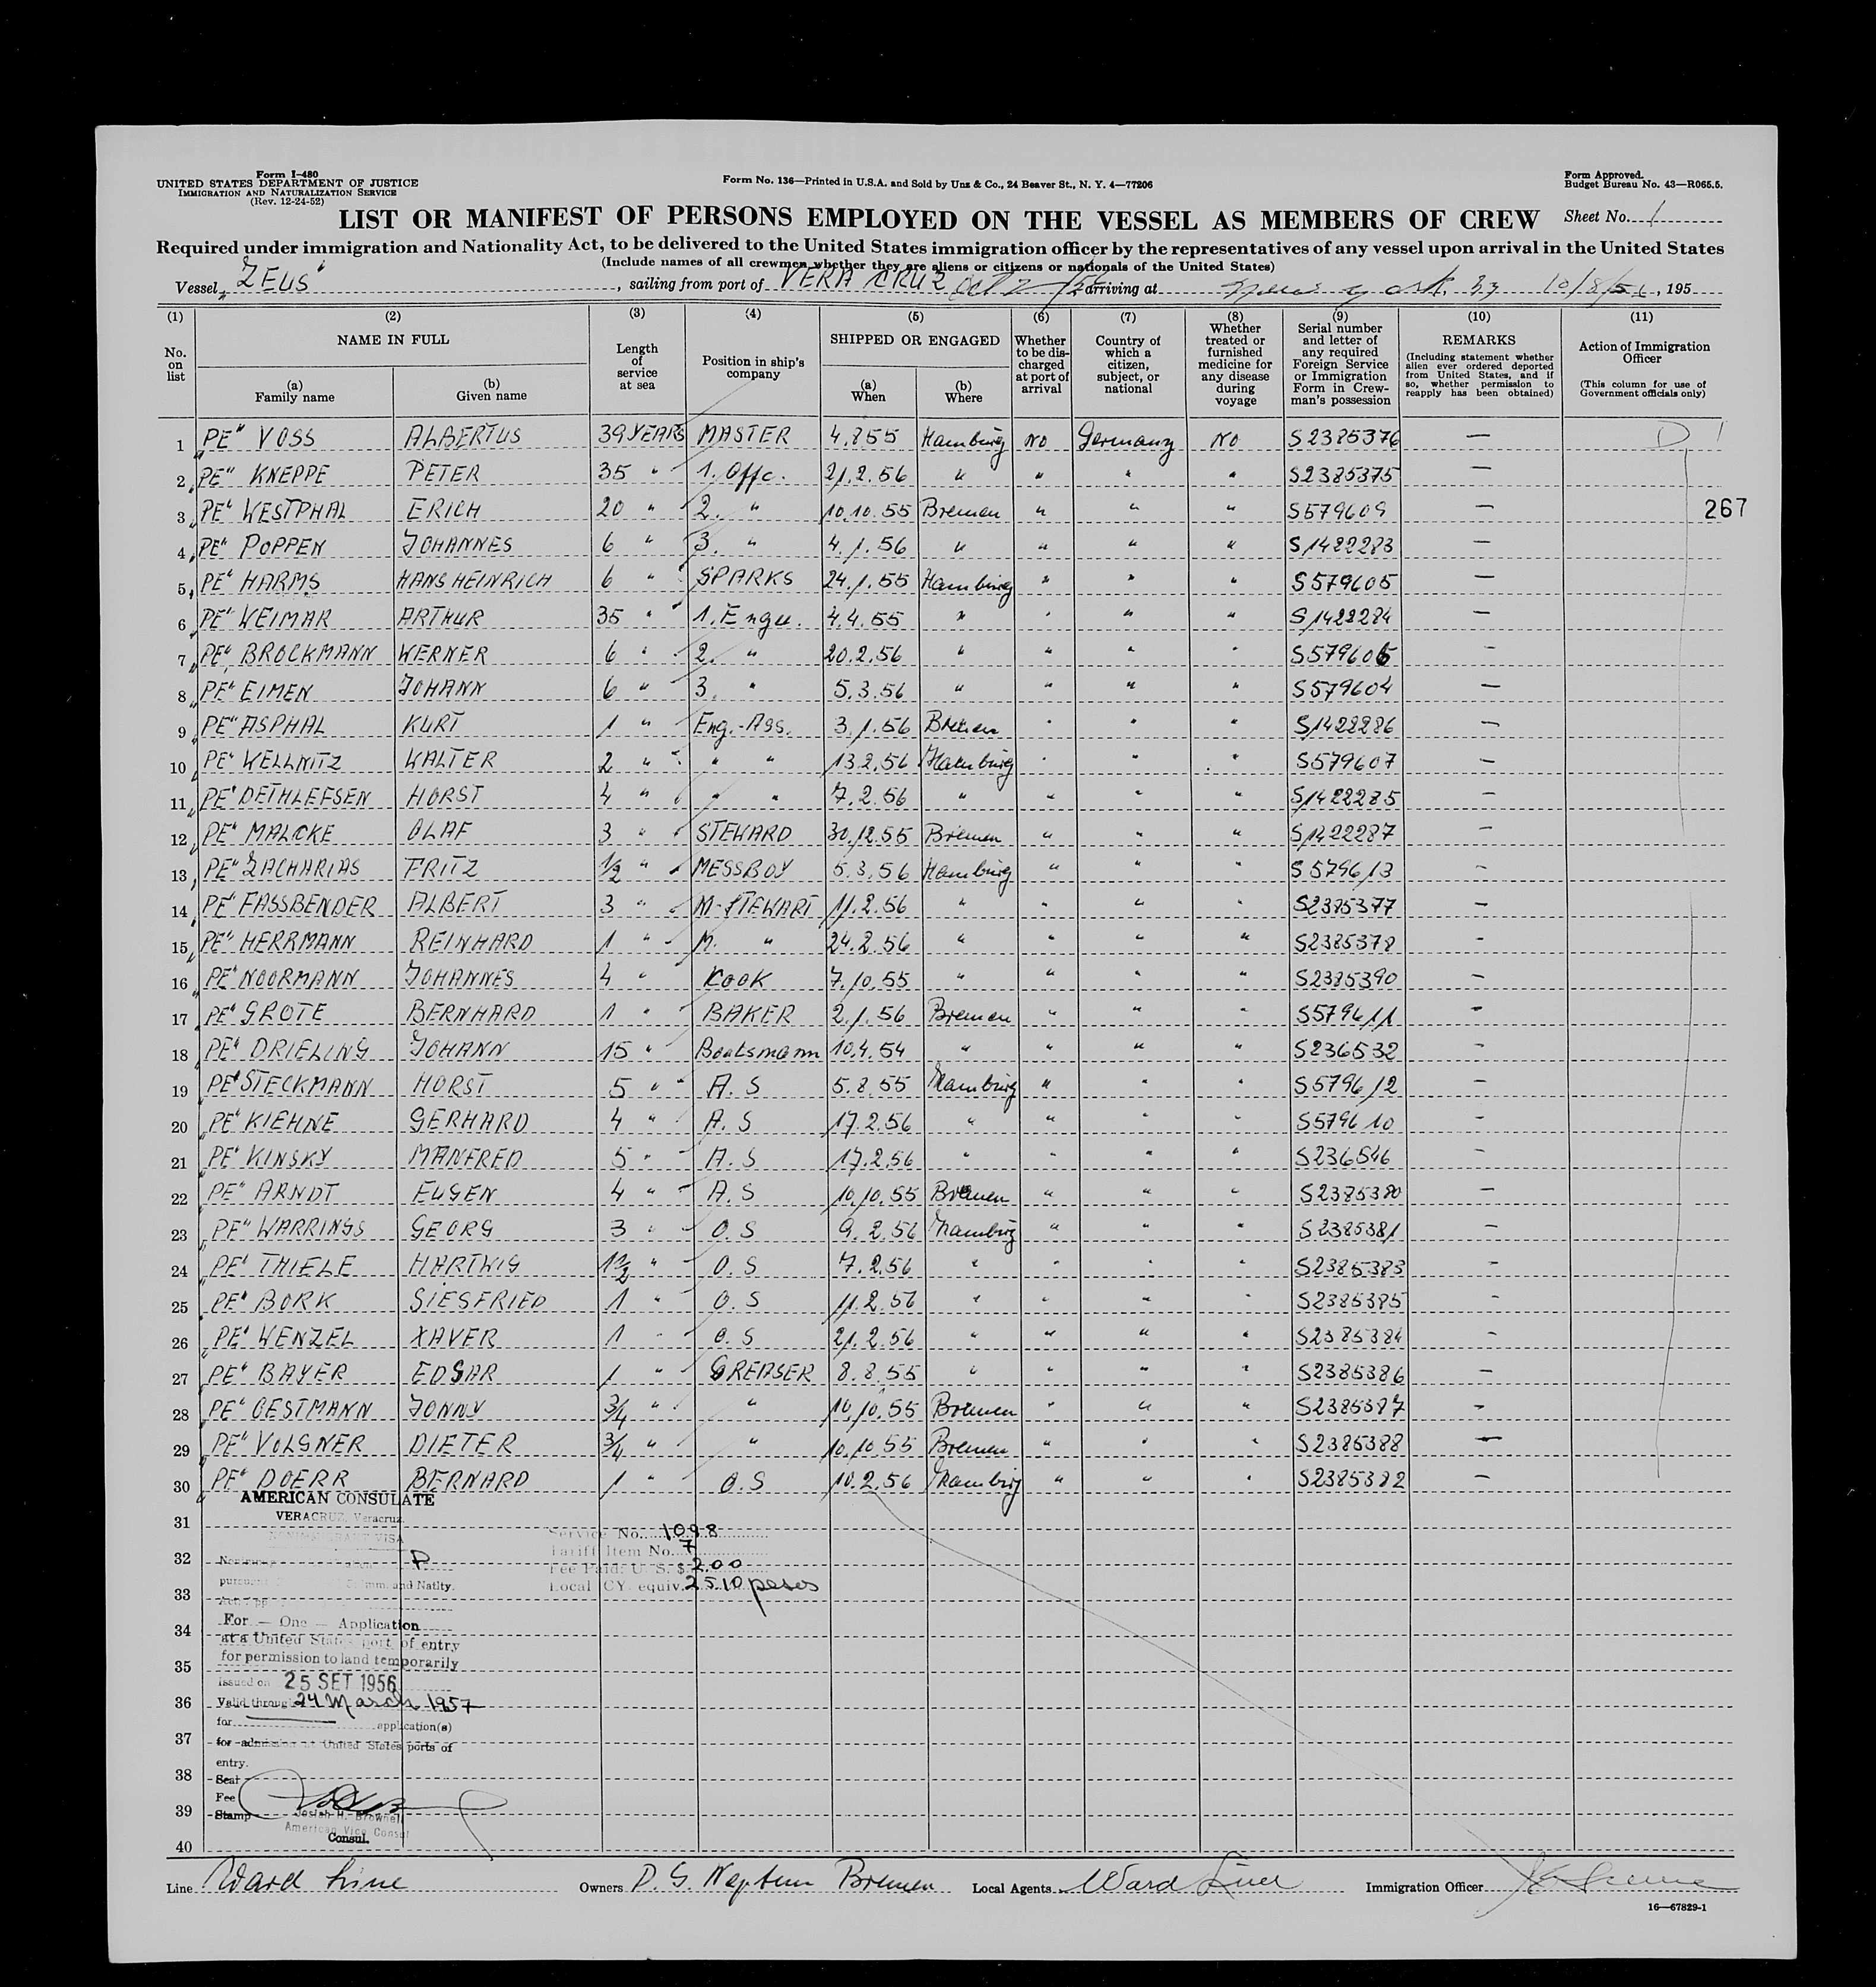 Form I-480
UNITED STATES DEPARTMENT OF JUSTICE
IMMIGRATION AND NATURALIZATION SERVICE
(Rev. 12-24-52)
Form No. 136—Printed in U.S.A. and Sold by Unz & Co., 24 Beaver St., N. Y. 4—77206
Form Approved.
Budget Bureau No. 43—R065.5.
LIST OR MANIFEST OF PERSONS EMPLOYED ON THE VESSEL AS MEMBERS OF CREW Sheet No. 1
Required under immigration and Nationality Act, to be delivered to the United States immigration officer by the representatives of any vessel upon arrival in the United States
(Include names of all crewmen whether they are aliens or citizens or nationals of the United States)
Vessel "ZEUS", sailing from port of VERA CRUZ Oct 2 arriving at New York, 10/8/56, 195
(1) (2) (3) (4) (5) (6) (7) (8) (9) (10) (11)
No. on list
NAME IN FULL
(a) Family name
(b) Given name
Length of service at sea
Position in ship's company
SHIPPED OR ENGAGED
(a) When
(b) Where
Whether to be discharged at port of arrival
Country of which a citizen, subject, or national
Whether treated or furnished medicine for any disease during voyage
Serial number and letter of any required Foreign Service or Immigration Form in Crewman's possession
REMARKS
(Including statement whether alien ever ordered deported from United States, and if so, whether permission to reapply has been obtained)
Action of Immigration Officer
(This column for use of Government officials only)
1 "PE" VOSS ALBERTUS 39 YEARS MASTER 4.8.55 Hamburg NO Germany NO S2385376 — D
2 "PE" KNEPPE PETER 35 " 1. Offc. 21.2.56 " " " " S2385375 —
3 "PE" WESTPHAL ERICH 20 " 2. " 10.10.55 Bremen " " " S579609 — 267
4 "PE" POPPEN JOHANNES 6 " 3. " 4.1.56 " " " " S1422283 —
5 "PE" HARMS HANS HEINRICH 6 " SPARKS 24.1.55 Hamburg " " " S579605 —
6 "PE" WEIMAR ARTHUR 35 " 1. Engu. 4.4.55 " " " " S1422284 —
7 "PE" BROCKMANN WERNER 6 " 2. " 20.2.56 " " " " S579606 —
8 "PE" EIMEN JOHANN 6 " 3. " 5.3.56 " " " " S579604 —
9 "PE" ASPHAL KURT 1 " Eng.-Ass. 3.1.56 Bremen " " " S1422286 —
10 "PE" WELLNITZ WALTER 2 " " " 13.2.56 Hamburg " " " S579607 —
11 "PE" DETHLEFSEN HORST 4 " " " 7.2.56 " " " " S1422285 —
12 "PE" MALCKE OLAF 3 " STEWARD 30.12.55 Bremen " " " S1422287 —
13 "PE" ZACHARIAS FRITZ 1/2 " MESSBOY 5.3.56 Hamburg " " " S579613 —
14 "PE" FASSBENDER ALBERT 3 " M-STEWART 11.2.56 " " " " S2385377 —
15 "PE" HERRMANN REINHARD 1 " M. " 24.2.56 " " " " S2385378 —
16 "PE" NOORMANN JOHANNES 4 " KOOK 7.10.55 " " " " S2385390 —
17 "PE" GROTE BERNHARD 1 " BAKER 2.1.56 Bremen " " " S579611 —
18 "PE" DRIELING JOHANN 15 " Bootsmann 10.4.54 " " " " S236532 —
19 "PE" STECKMANN HORST 5 " A. S 5.8.55 Hamburg " " " S579612 —
20 "PE" KIEHNE GERHARD 4 " A. S 17.2.56 " " " " S579610 —
21 "PE" KINSKY MANFRED 5 " A. S 17.2.56 " " " " S236546 —
22 "PE" ARNDT EUGEN 4 " A. S 10.10.55 Bremen " " " S2385380 —
23 "PE" WARRINGS GEORG 3 " O. S 9.2.56 Hamburg " " " S2385381 —
24 "PE" THIELE HARTWIG 1 1/2 " O. S 7.2.56 " " " " S2385383 —
25 "PE" BORK SIEGFRIED 1 " O. S 11.2.56 " " " " S2385385 —
26 "PE" WENZEL XAVER 1 " O. S 21.2.56 " " " " S2385384 —
27 "PE" BAYER EDGAR 1 " GREASER 8.8.55 " " " " S2385386 —
28 "PE" OESTMANN JONNY 3/4 " " 10.10.55 Bremen " " " S2385387 —
29 "PE" VOLGNER DIETER 3/4 " " 10.10.55 Bremen " " " S2385388 —
30 "PE" DOERR BERNARD 1 " O.S 10.2.56 Hamburg " " " S2385382 —
AMERICAN CONSULATE
31 VERACRUZ, Veracruz
NONIMMIGRANT VISA
Service No. 1098
32 D
Tariff Item No. 7
Fee Paid: U. S. $ 2.00
Imm. and Natlty.
33 Local CY. equiv. 25.10 pesos
For — One — Application
34 at a United States port of entry
for permission to land temporarily
35 Issued on 25 SET 1956
36 Valid through 24 March 1957
for application(s)
37 for admission at United States ports of
entry.
38 Seal
Fee
39 Stamp
Josiah H. Brownell
American Vice Consul
Consul.
40
Line Ward Line Owners D. G. Neptun Bremen Local Agents Ward Line Immigration Officer
16—67829-1